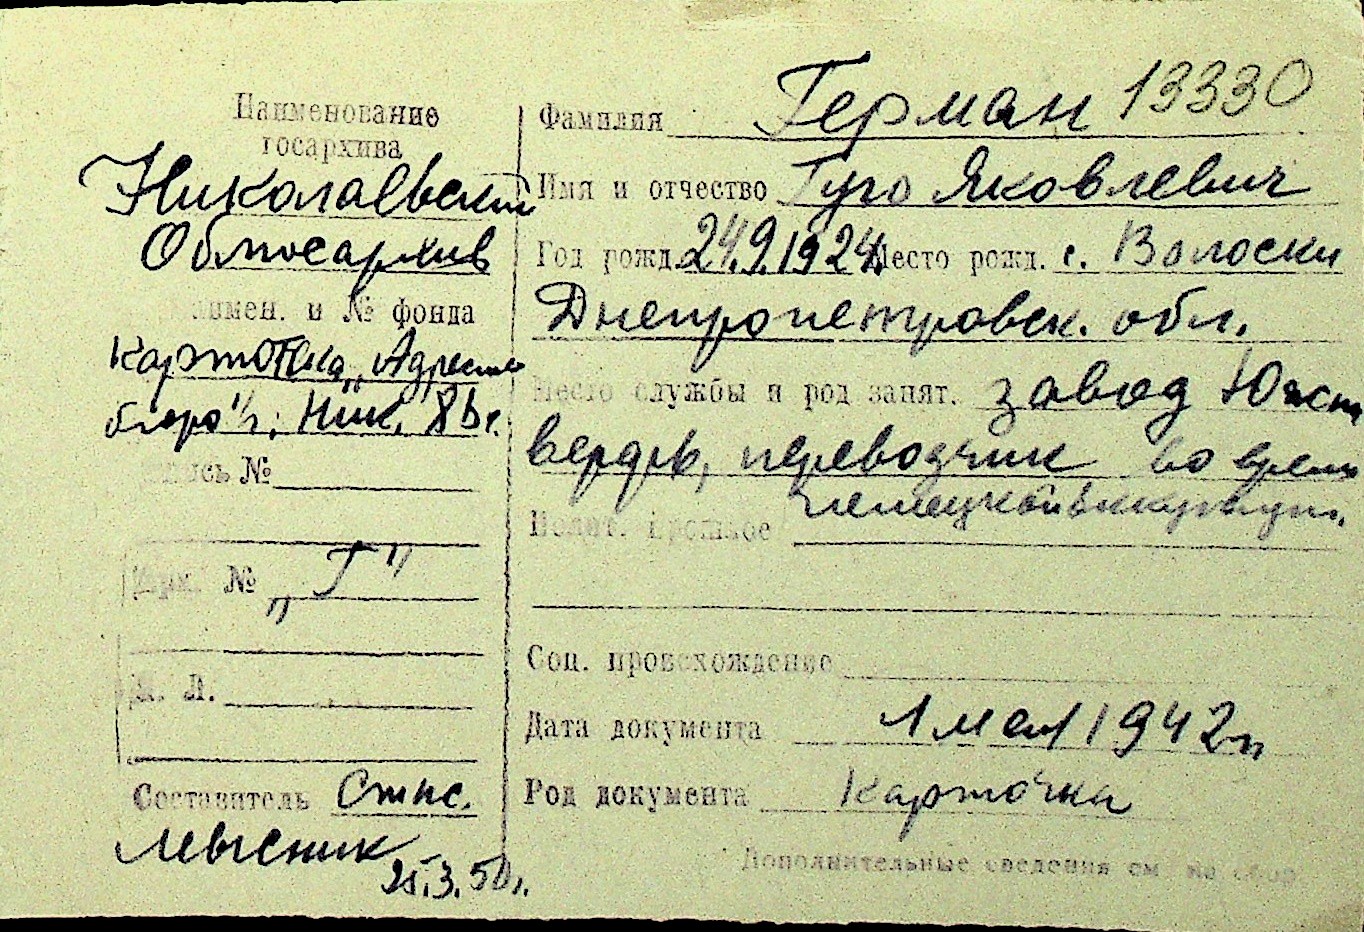 Наименование
госархива
Николаевский
Облгосархив
Наимен. и № фонда
Картотека „Адресное
бюро"г. Ник. 8б г.
Опись №
Арх. № „Г"
Л. Л.
Составитель Стис.
25.3.50 г.
Фамилия Герман 13330
Имя и отчество Гуго Яковлевич
Год рожд. 24.9.1924 Место рожд. с. Волоски
Днепропетровск. обл.
Место службы и род занят. завод Южн
верфь, переводчик во время
немецкой оккупации.
Полит. прошлое
Соц. происхождение
Дата документа 1 мая 1942 г.
Род документа Карточка
Дополнительные сведения см на обор.